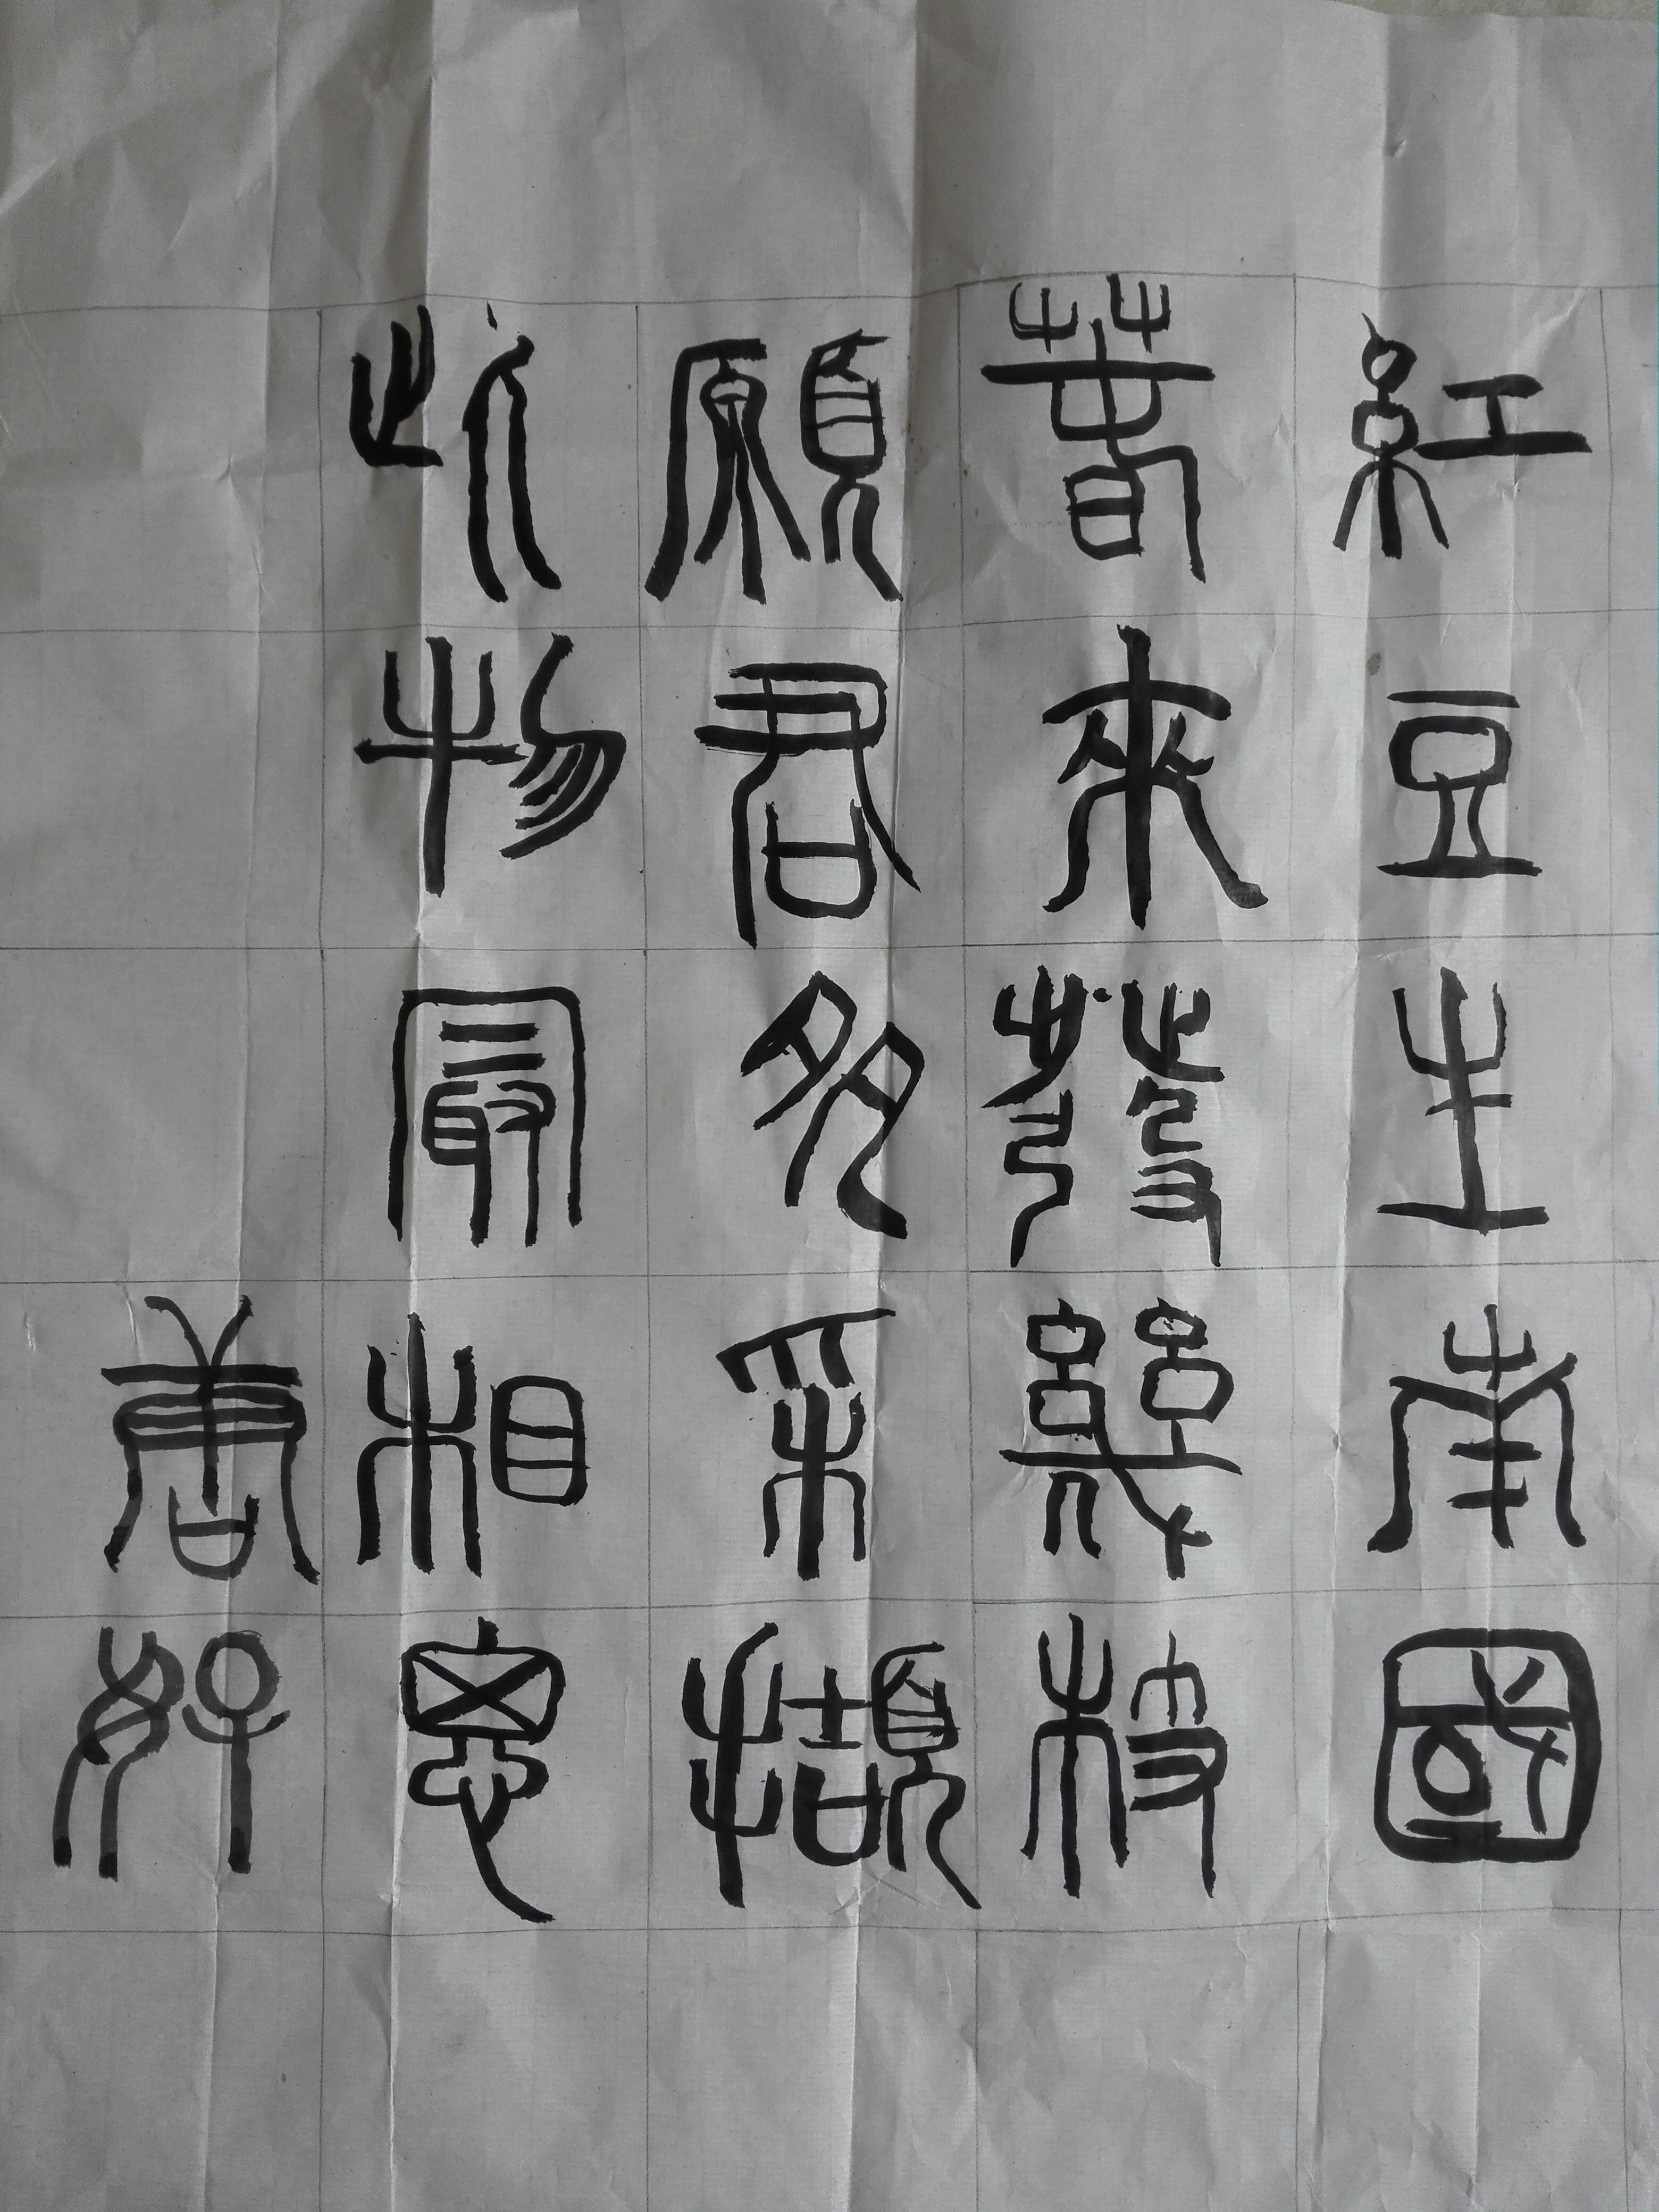 紅豆生南國
春來發幾枝
願君多采擷
此物最相思
唐好